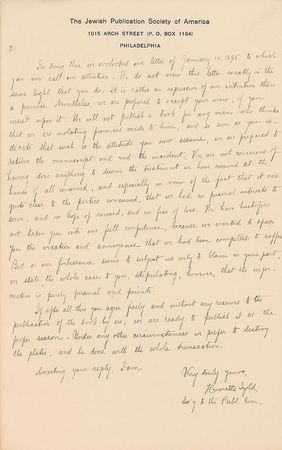 The Jewish Publication Society of America
1015 ARCH STREET (P. O. BOX 1164)
PHILADELPHIA
2.
In doing this we overlooked our letter of January 14, 1895, to which
you now call our attention. We do not view this letter exactly in the
same light that you do. It is rather an expression of our intention than
a promise. Nonetheless, we are prepared to accept your view, if you
insist upon it. We will not publish a book for any man who thinks
that we are violating promises made to him, and as soon as you
decide that such is the attitude you now assume, we are prepared to
return the manuscript and end the incident. We are not conscious of
having done anything to deserve the treatment we have received at the
hands of all concerned, and especially in view of the fact that it was
quite clear to the parties concerned that we had no personal interests to
serve, and no hope of reward, and no fear of loss. We have heretofore
not taken you into our full confidence, because we wanted to spare
you the vexation and annoyance that we had been compelled to suffer.
But as our forbearance seems to subject us only to blame on your part,
we state the whole case to you, stipulating, however, that the infor-
mation is purely personal and private.
If after all this you agree freely and without any reserves to the
publication of the book by us, we are ready to publish it at the
proper season. Under any other circumstances we prefer to destroy
the plates, and be done with the whole transaction.
Awaiting your reply, I am
Very truly yours,
Henrietta Szold
Sec'y to the Publ. Com.